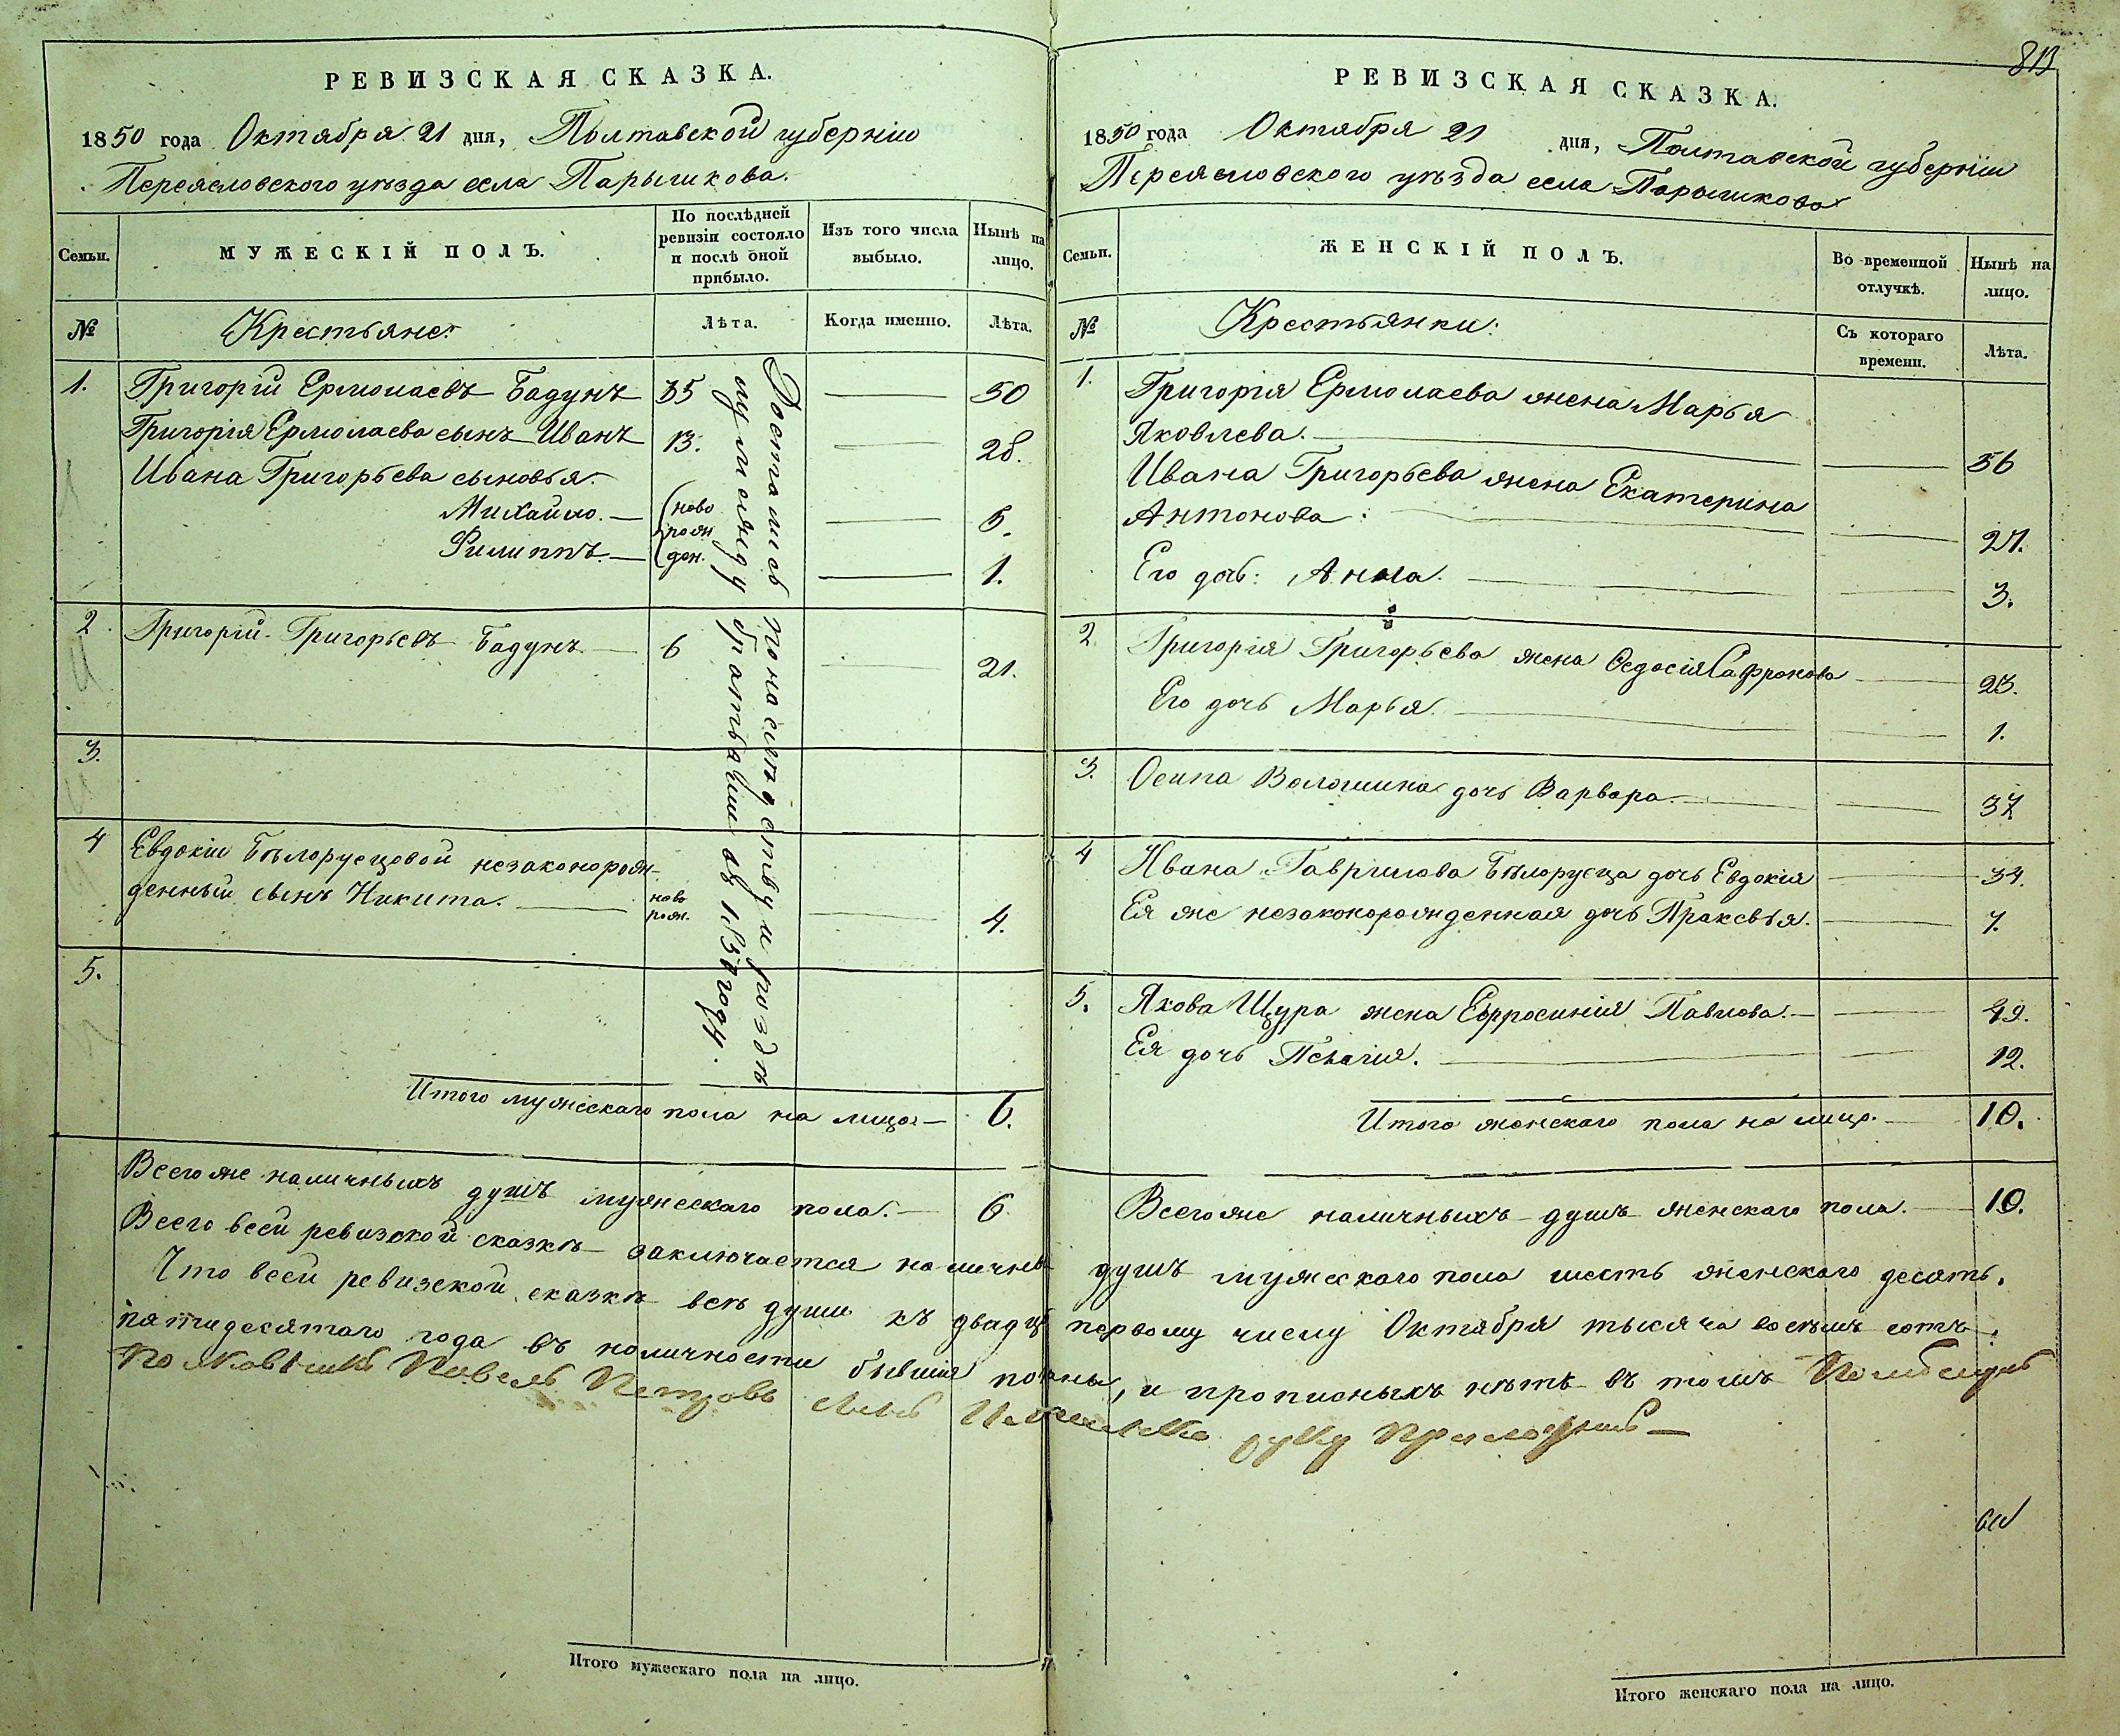 РЕВИЗСКАЯ СКАЗКА.
1850 года Октября 21 дня, Полтавской губерніи
Переясловского уѣзда села Парышкова.
Семьи.
МУЖЕСКІЙ ПОЛЪ.
По послѣдней
ревизіи состояло
и послѣ оной
прибыло.
Изъ того числа
выбыло.
Нынѣ на
лицо.
№
Крестьяне:
Лѣта.
Когда именно.
Лѣта.
1. Григорій Ермолаевъ Бадунъ 35 50
Григорія Ермолаева сынъ Иванъ 13. 28.
Ивана Григорьева сыновья.
Михайло. ново 5.
рож
Филиппъ. ден. 1.
2. Григорій Григорьевъ Бадунъ. 6 21.
3.
4 Евдокіи Бѣлорусцовой незаконорож-
денный сынъ Никита. ново
рож. 4.
5.
Достались по наслѣдству и раздѣ
лу между братьями въ 1850 году.
Итого мужескаго пола на лицо. 6.
Всего же наличныхъ душъ мужескаго пола. 6
Всего всей ревизской сказкѣ заключается наличны
Что всей ревизской сказкѣ всѣ души къ двадц
пятидесятаго года въ наличности бывшія
Полковникъ Павелъ Петровъ сынъ
Итого мужескаго пола на лицо.
813
РЕВИЗСКАЯ СКАЗКА.
1850 года Октября 21 дня, Полтавской губерніи
Переясловского уѣзда села Парышкова
Семьи.
ЖЕНСКІЙ ПОЛЪ.
Во временной
отлучкѣ.
Нынѣ на
лицо.
№
Крестьянки:
Съ котораго
времени.
Лѣта.
1. Григорія Ермолаева жена Марья
Яковлева. 56
Ивана Григорьева жена Екатерина
Антонова: 27.
Его дочь: Анна. 3.
2. Григорія Григорьева жена Ѳедосія Сафронова 23.
Его дочь Марья. 1.
3. Осипа Волошина дочь Варвара. 37
4 Ивана Гаврилова Бѣлорусца дочь Евдокія 34.
Ея же незаконорожденная дочь Праксевья. 7.
5. Якова Щура жена Ефросинія Павлова. 49.
Ея дочь Пелагія. 12.
Итого женскаго пола на лицо. 10.
Всего же наличныхъ душъ женскаго пола. 10.
душъ мужескаго пола шесть женскаго десять.
первому числу Октября тысяча восемь сотъ
, и прописныхъ нѣтъ въ томъ
руку приложилъ
Итого женскаго пола на лицо.